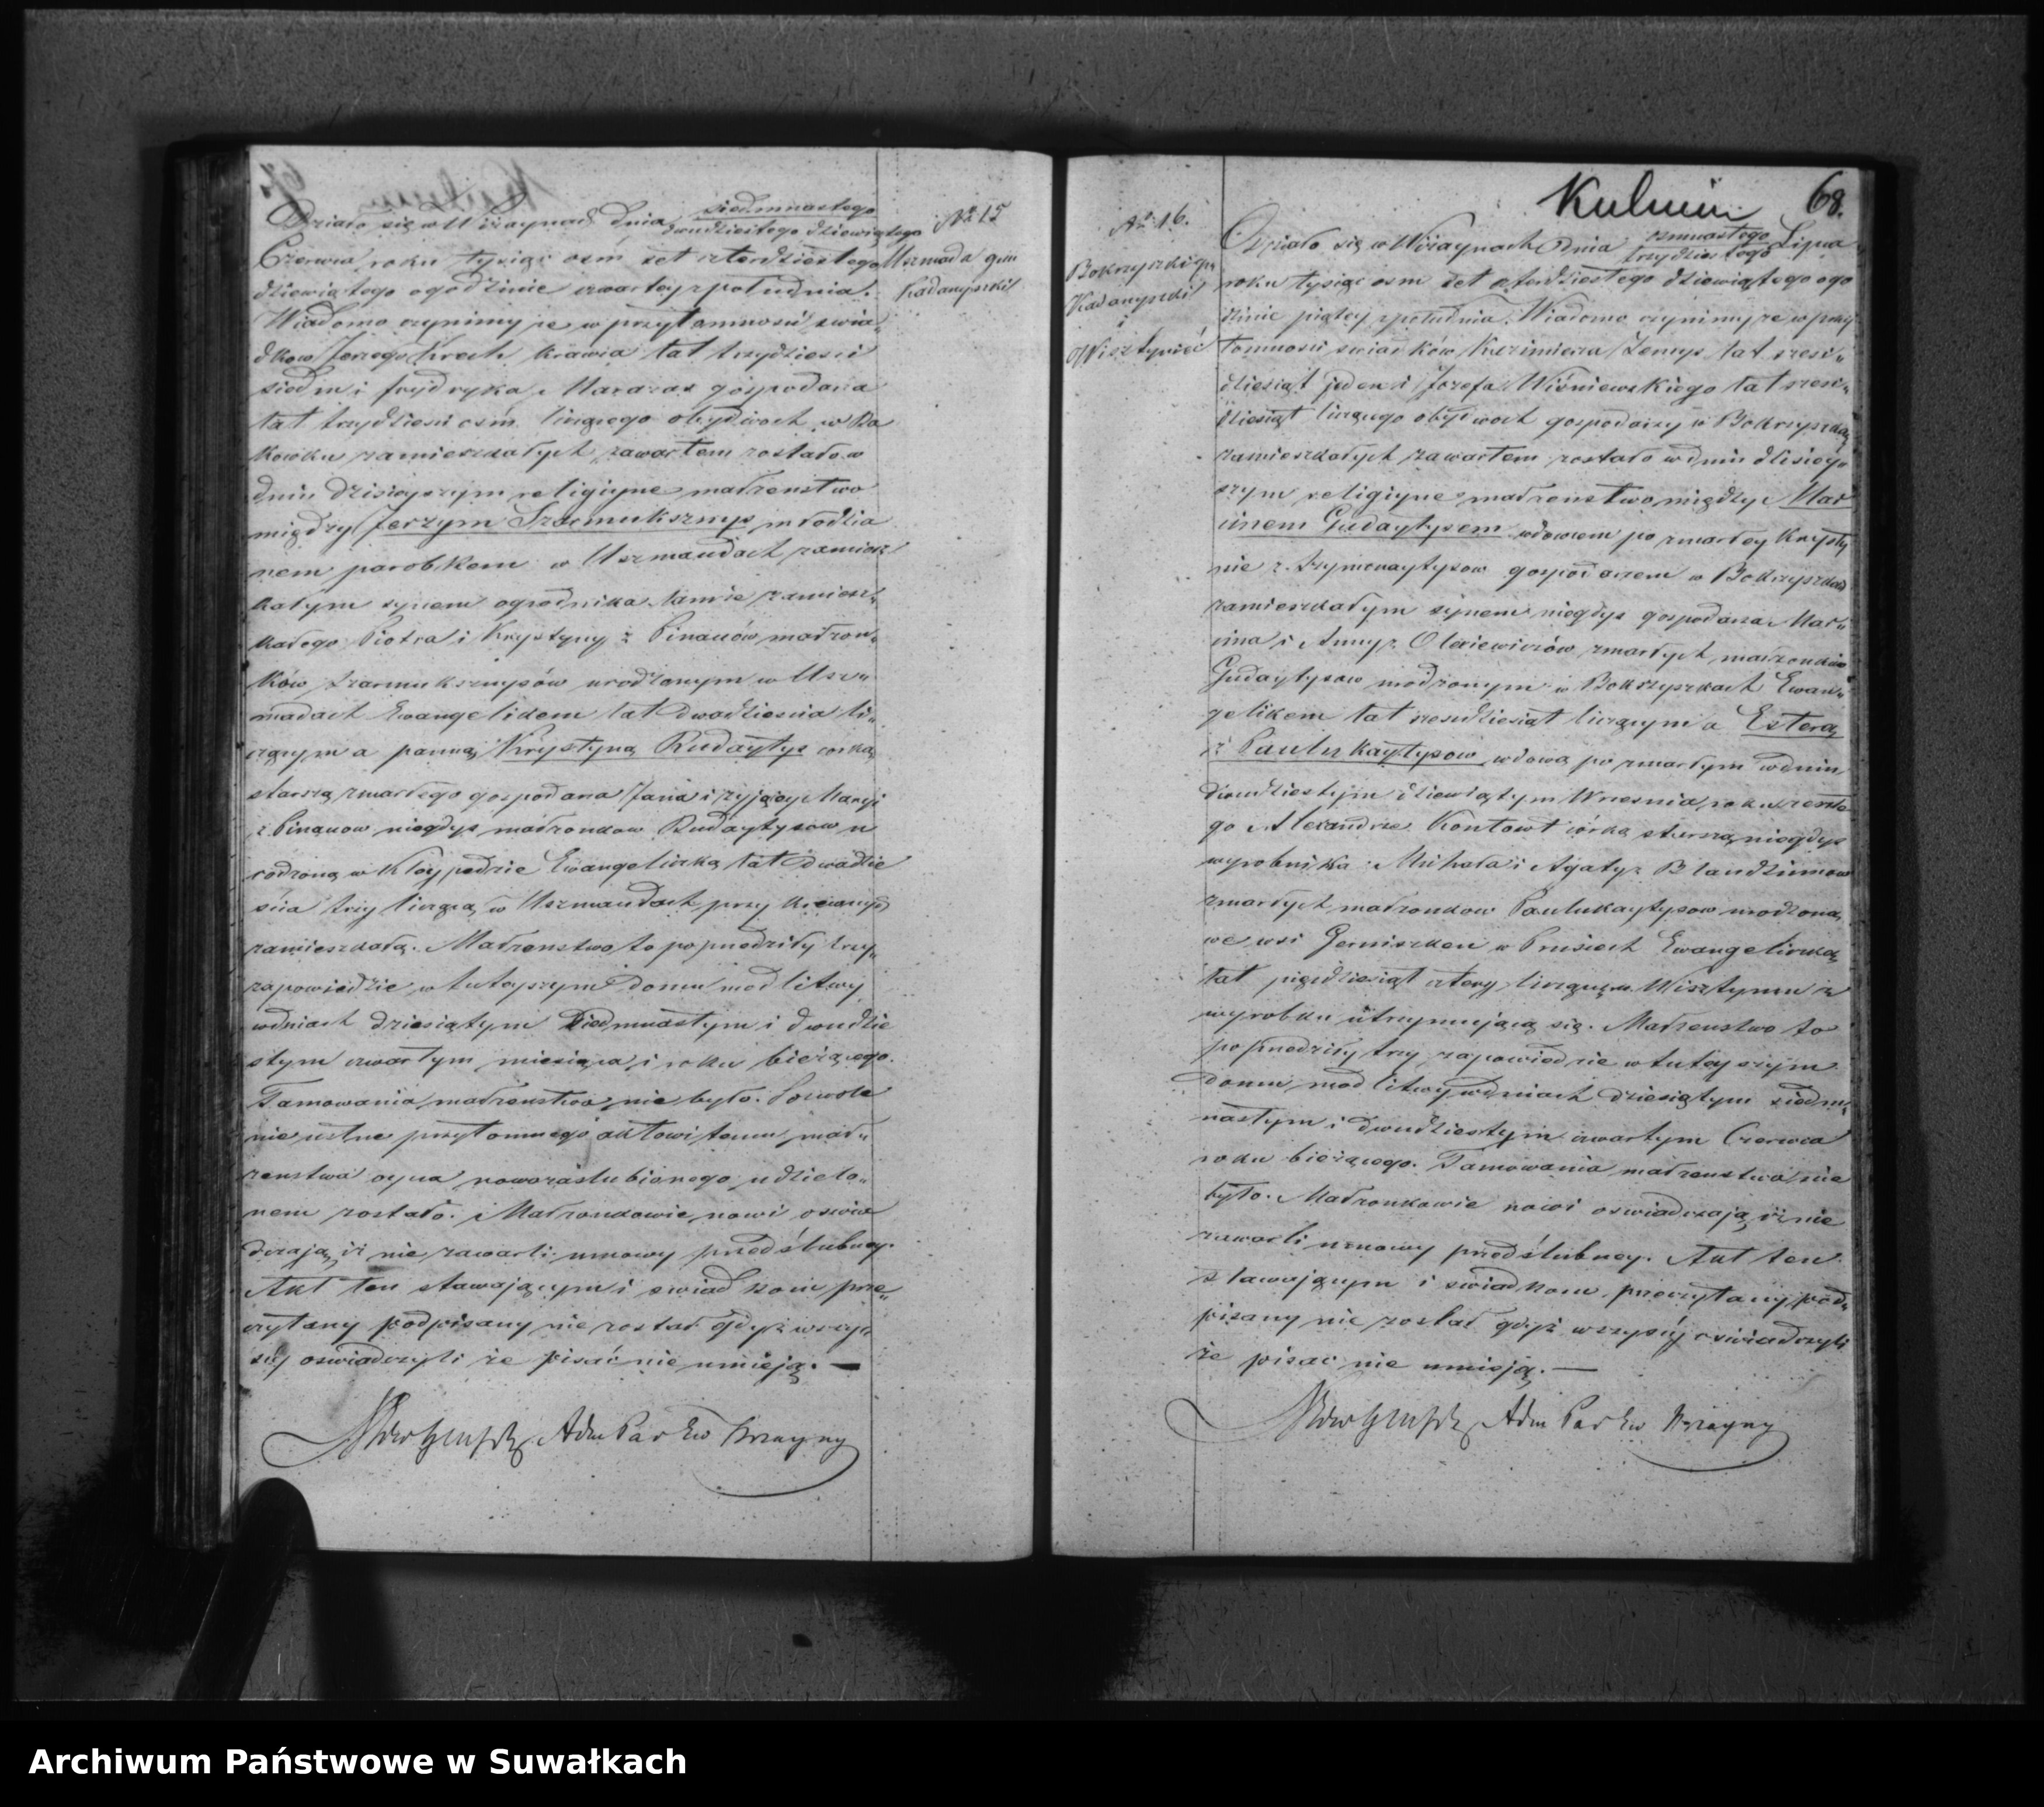 Działo się w Wiżaynach dnia siedmnastego
dwudziestego dziewiątego
Czerwca roku tysiąc osm set czterdziestego
dziewiątego o godzinie czwartey z południa.
Wiadomo czynimy że w przytomności świa„
dków Jerzego Krech krawca lat trzydzieści
siedm i frydryka gospodarza
lat trzydzieści ośm liczącego obydwóch w
zamieszkałych zawartem zostało w
dniu dzisieyszym religiyne małżeństwo
między Jerzym młodzia
nem parobkem w Uszmaudach zamiesz
kałym synem ogrodnika tamże zamiesz„
kałego Piotra i Krystyny z małżon„
ków urodzonym w Usz„
madach Ewangelikem lat dwadzieścia li„
czącym a panną Krystyną Rudaytys córką
starszą zmarłego gospodarza Jana i żyjącey Maryi
z niegdys małżonków Rudaytysow u
rodzoną w Kłaypedzie Ewangeliczką lat dwadzie
ścia trzy liczącą w Uszmaudach przy
zamieszkałą. Małżenstwo to poprzedziły trzy„
zapowiedzie w tuteyszym Domu modlitwy
w dniach dziesiątym Siedmnastym i dwudzie
stym czwartym miesiąca i roku bieżącego.
Tamowania małżeństwa nie było. Pozwole
nie ustne przytomnego aktowi temu mał„
żenstwa oyca nowozaślubionego udzielo„
nem zostało. Małżonkowie nowi oświa
dczają iż nie zawarli umowy przedślubney.
Akt ten stawającym i świadkom prze„
czytany podpisany nie został gdyż wszy„
scy oświadczyli że pisać nie umieją. —
Adm Par Ew Wiżayny
№ 15
Uszmada gm
Kadaryszki
Kulmin 68.
№ 16.
Bokszyszki gm
Kadaryszki
i
Wisztyniec
Działo się w Wiżaynach Dnia osmnastego
trzydziestego Lipca
roku tysiąc osm set czterdziestego dziewiątego ogo
dzinie piątey z południa. Wiadomo czynimy że w przy
tomności świadków Kazimierza lat sześć„
dziesiąt jeden i Jozefa Wiśniewskiego lat sześć„
dziesiąt liczącego obydwoch gospodarzy w Bokszyszkach
zamieszkałych zawartem zostało w dniu dzisiey
szym religiyne małżenstwo między Mar
cinem Gudaytysem wdowcem po zmarłey Krysty
nie z Szymonaytysow gospodarzem w Bokszyszkach
zamieszkałym synem niegdys gospodarza Mar„
cina i Anny z Olexiewiczów zmarłych małżonków
Gudaytysow urodzonym w Bokszyszkach Ewan„
gelikem lat sześćdziesiąt liczącym a Esterą
z Paulukaytysow wdową po zmarłym w dniu
dwudziestym dziewiątym Wrzesnia roku zeszłe
go Alexandrze Kontowt córką starszą niegdys
wyrobnika Michała i Agaty z
zmarłych małżonkow Paulukaytysow urodzoną
we wsi w Prusiech Ewangeliczką
lat pięćdziesiąt cztery liczącą w Wisztyncu z
wyrobku utrzymującą się. Małżenstwo to
poprzedziły trzy zapowiedzie w tuteyszym
Domu modlitwy w dniach dziesiątym siedm„
nastym i dwudziestym czwartym Czerwca
roku bieżącego. Tamowania małżenstwa nie
było. Małżonkowie nowi oświadczają iż nie
zawarli umowy przedślubney. Akt ten
stawającym i świadkom przeczytany pod„
pisany nie został gdyż wszyscy oświadczyli
że pisać nie umieją. —
Adm Par Ew Wiżayny
Archiwum Państwowe w Suwałkach